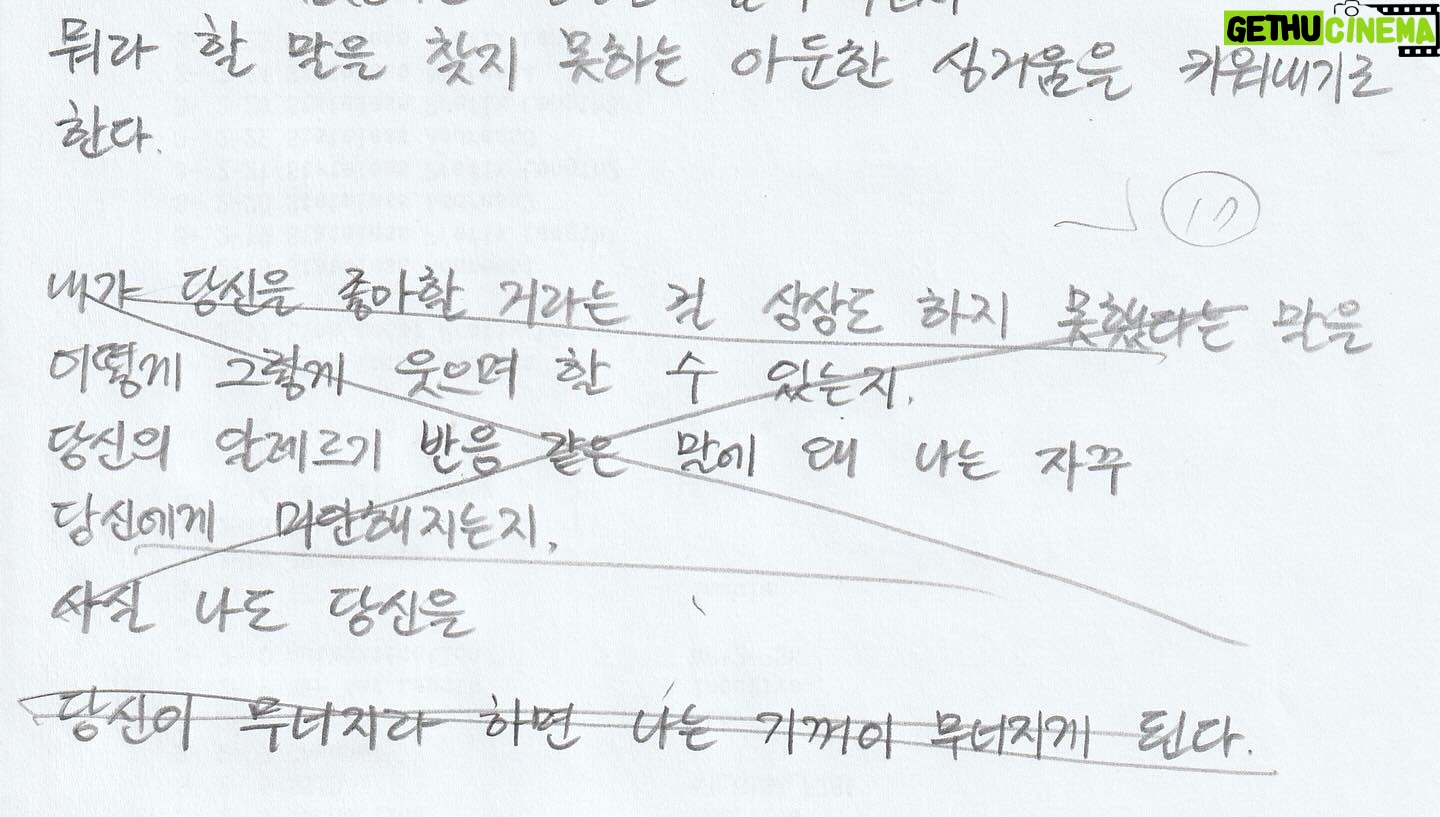 GETHUCINEMA
뭐라 할 말을 찾지 못하는 아둔한 싱거움을 키워내기로
한다.
17
내가 당신을 좋아할 거라는 건 상상도 하지 못했다는 말을
어떻게 그렇게 웃으며 할 수 있는지.
당신의 알레르기 반응 같은 말에 왜 나는 자꾸
당신에게 미안해지는지,
사실 나도 당신을
당신이 무너지라 하면 나는 기꺼이 무너지게 된다.